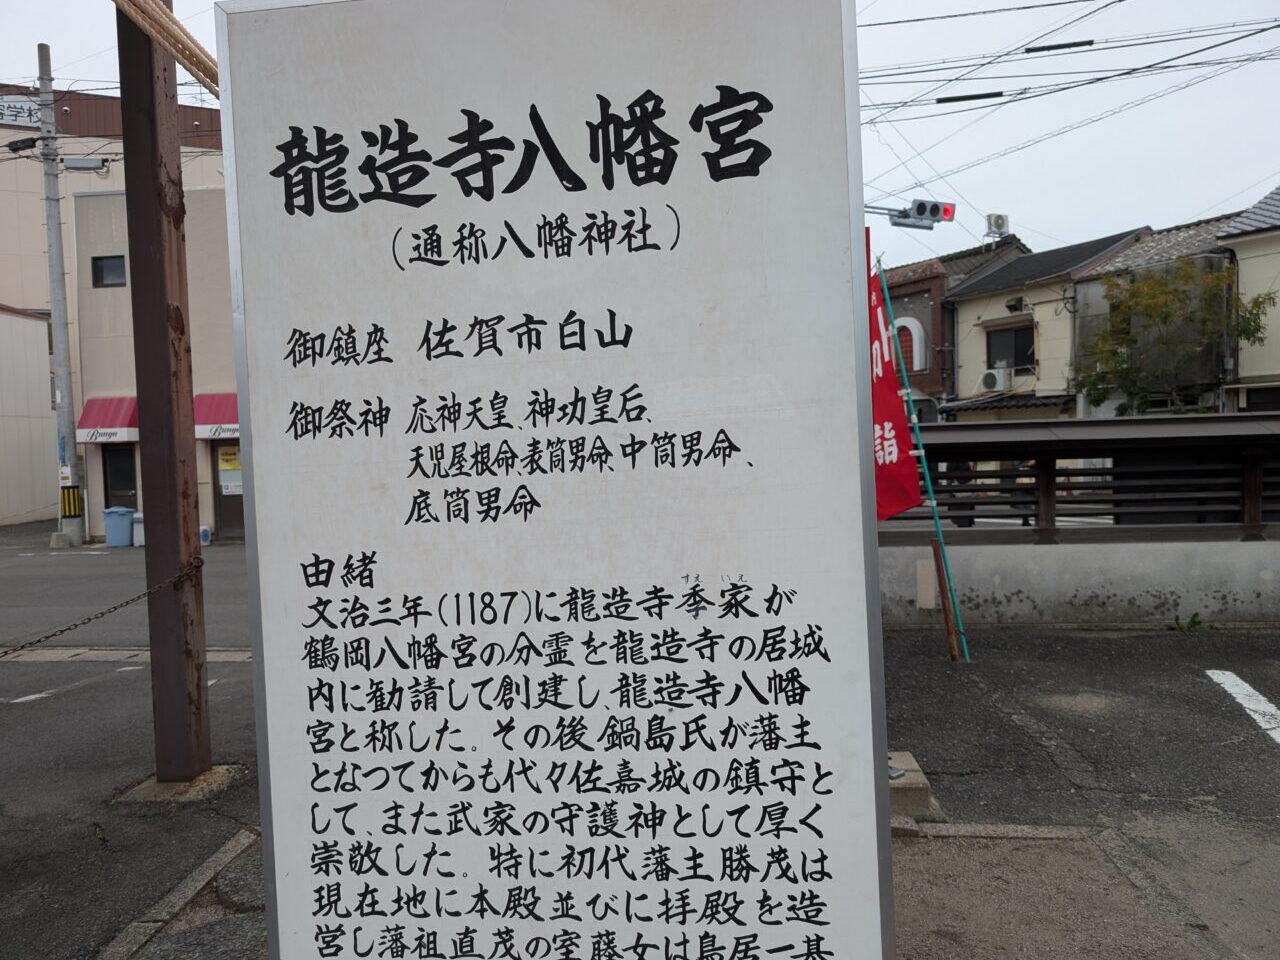 龍造寺八幡宮
（通称八幡神社）
御鎮座 佐賀市白山
御祭神 応神天皇、神功皇后、
天児屋根命、表筒男命、中筒男命、
底筒男命
由緒
文治三年(1187)に龍造寺季家が
すえ いえ
鶴岡八幡宮の分霊を龍造寺の居城
内に勧請して創建し、龍造寺八幡
宮と称した。その後鍋島氏が藩主
となつてからも代々佐嘉城の鎮守と
して、また武家の守護神として厚く
崇敬した。特に初代藩主勝茂は
現在地に本殿並びに拝殿を造
営し藩祖直茂の室藤女は鳥居一基
学校
詣